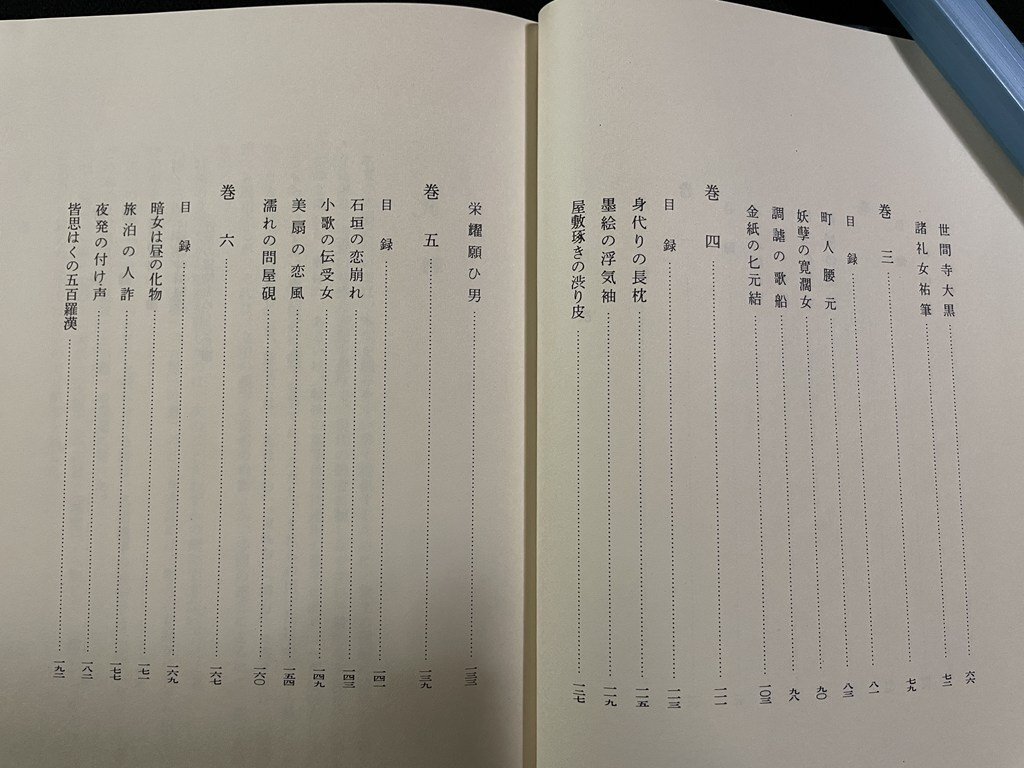 世間寺大黒……六六
諸礼女祐筆……七二
巻三……七九
目録……八一
町人腰元……八三
妖孽の寛濶女……九〇
調謔の歌船……九八
金紙の匕元結……一〇三
巻四……一一一
目録……一一三
身代りの長枕……一一五
墨絵の浮気袖……一一九
屋敷琢きの渋り皮……一二七
栄耀願ひ男……一三三
巻五……一三九
目録……一四一
石垣の恋崩れ……一四三
小歌の伝受女……一四九
美扇の恋風……一五四
濡れの問屋硯……一六〇
巻六……一六七
目録……一六九
暗女は昼の化物……一七一
旅泊の人詐……一七七
夜発の付け声……一八二
皆思はくの五百羅漢……一九二